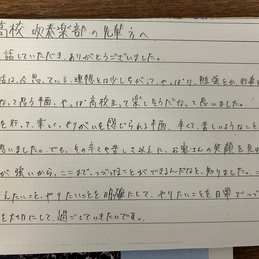 高校 吹奏楽部 の 先輩 方へ
話していただき、ありがとうございました。
話は、今思っている理想とは少しちがって、やっぱり、勉強とか
なって思う半面、やっぱ高校生って楽しそうだなって思いました。
を行って、楽しく、やりがいを感じられる半面、辛くて苦しいようなことも
思いました。でも、その辛さや苦しさよりも、お客さんの笑顔を見
が強いから、ここまで、つづけることができてるんだなと、知りました。こ
えんたいこと、やりたいことを明確にして、やりたいことを日常で
を大切にして、過ごしていきたいです。